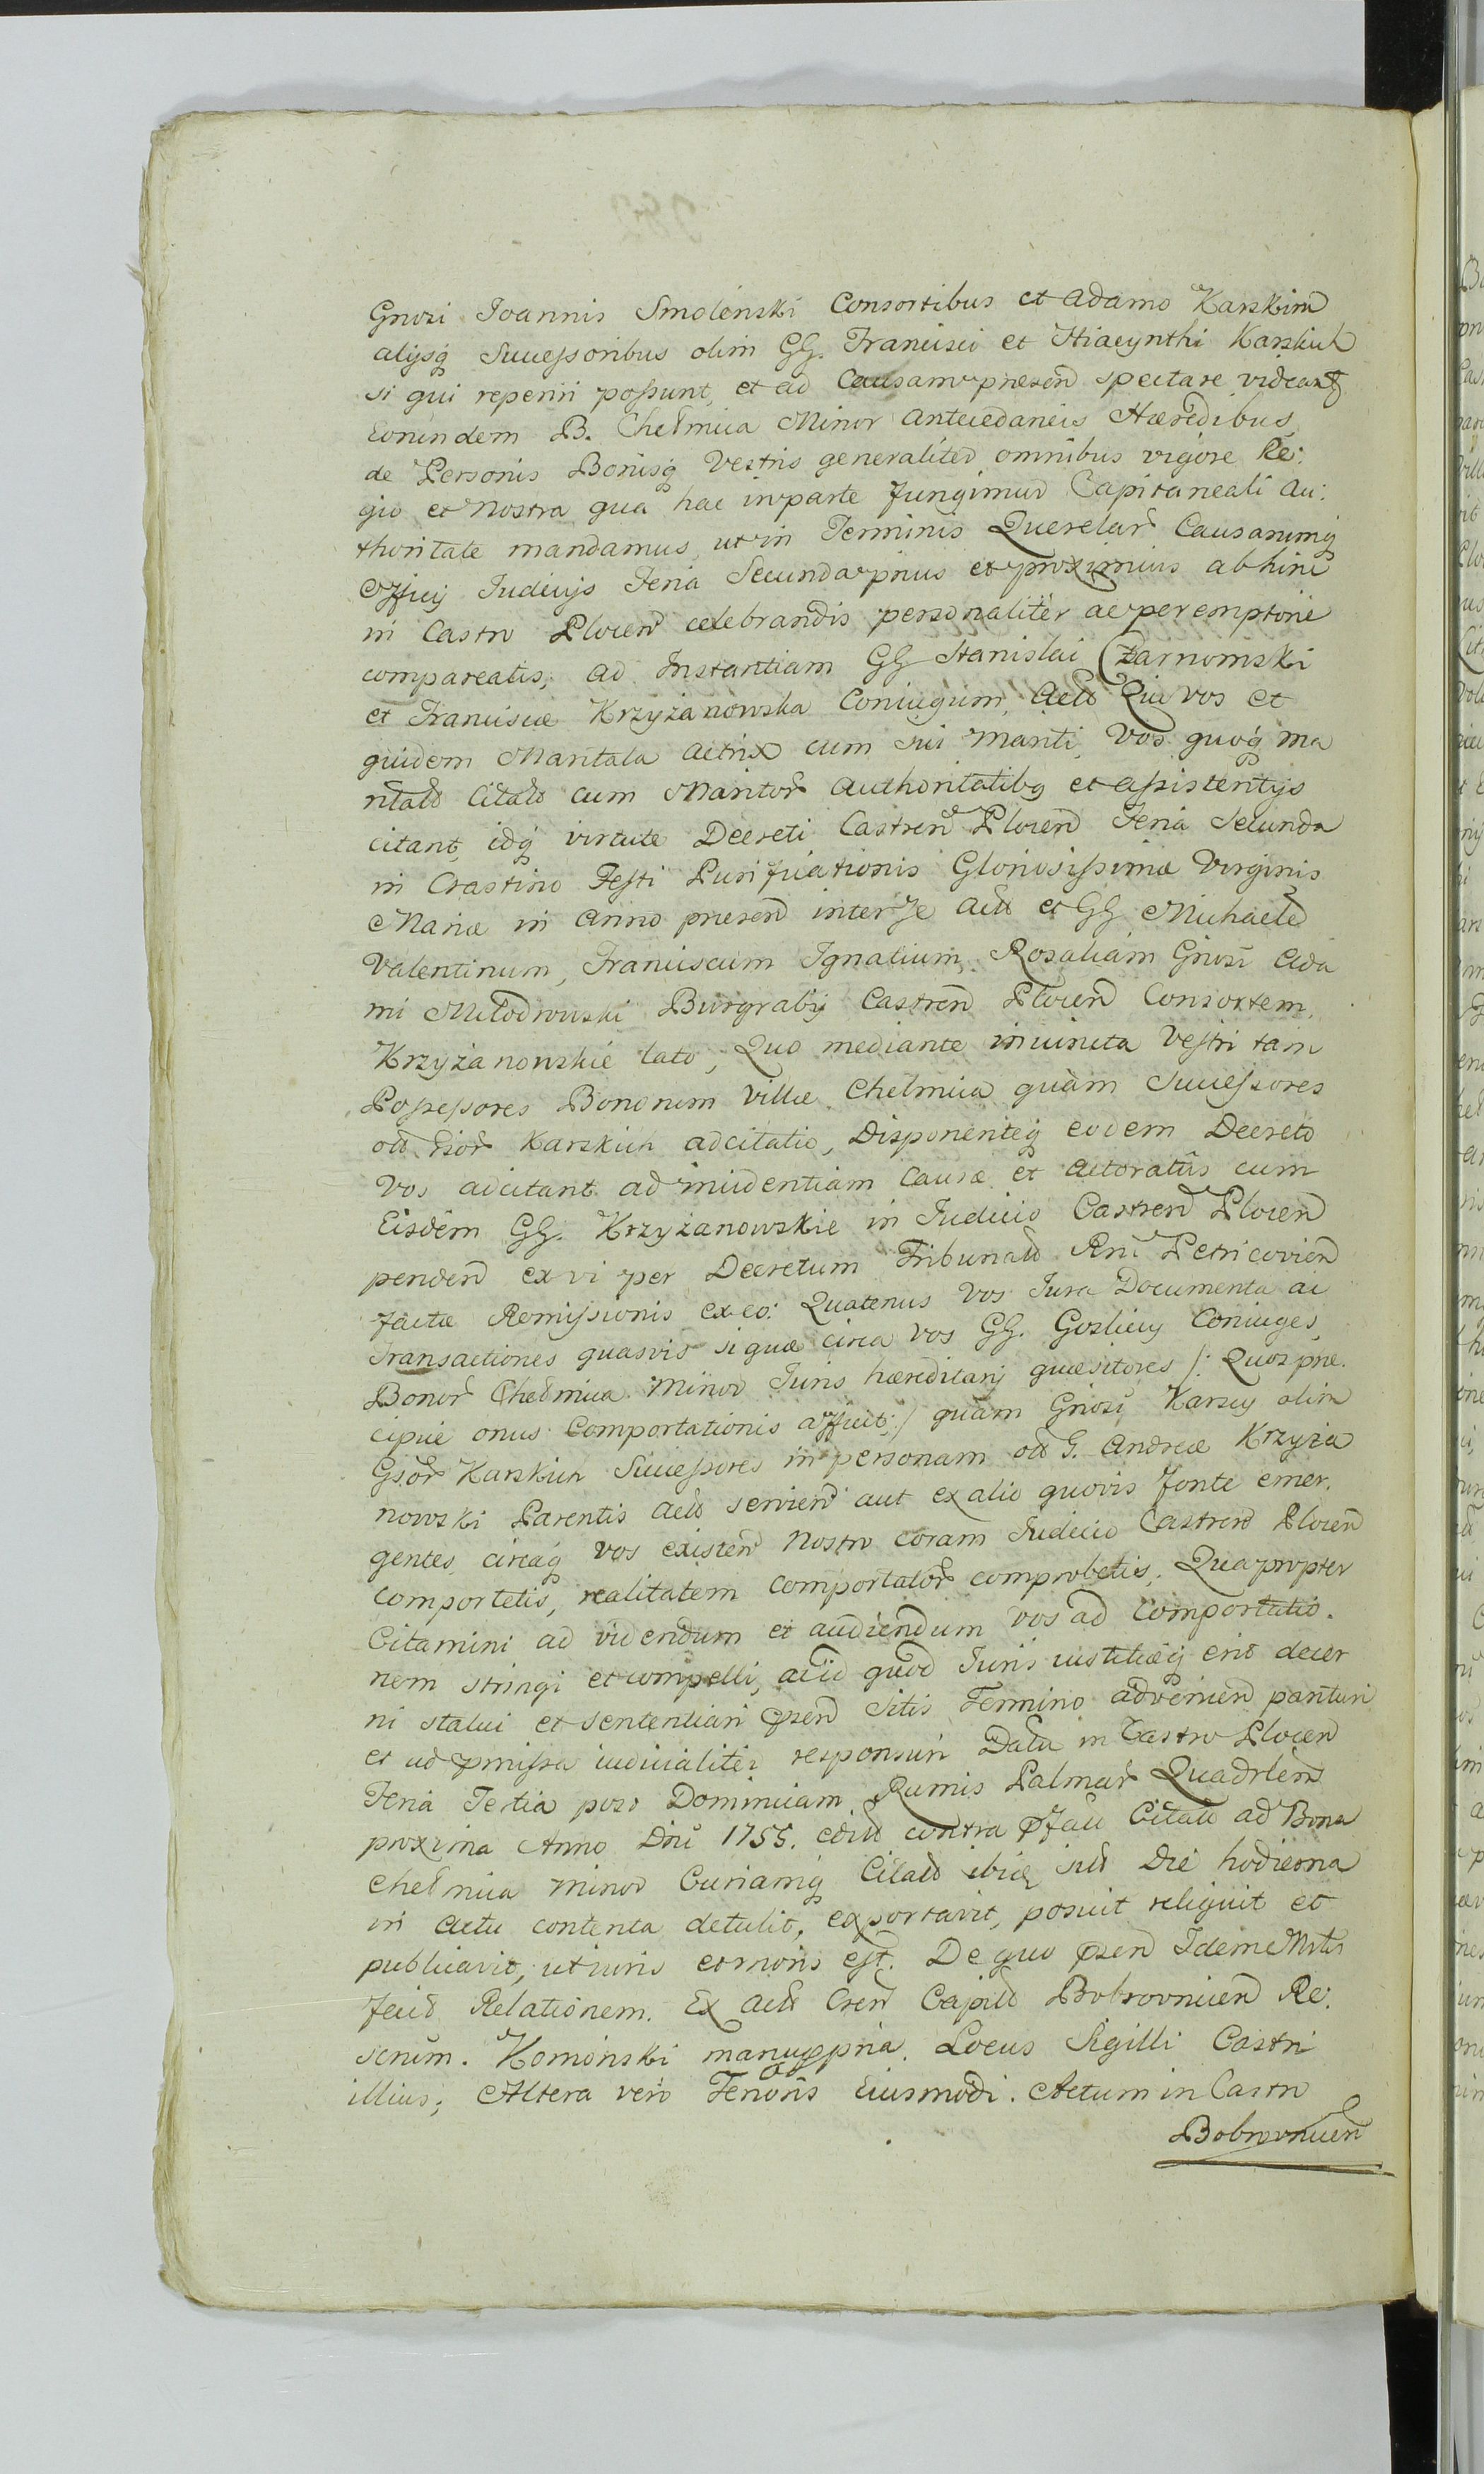 Gnosi Joannis Smolenski Consortibus et Adamo Karskim
alijsq Successoribus olim GG. Francisci et Hiacynthi Karskich
si qui reperiri possunt, et ad Causam presen spectare videant
Eorundem B. Chełmica Minor Antecedaneis Hæredibus
de Personis Bonisq Vestris generaliter omnibus vigore Re:
gio et Nostra qua hac in parte fungimur Capitaneali Au:
thoritate mandamus, ut in Terminis Querelar Causarumq
Officij Judicijs Feria Secunda prius et proximius abhinc
in Castro Plocen celebrandis personaliter ac peremptorie
compareatis, ad Instantiam GG Stanislai Czarnomski
et Franciscæ Krzyżanowska Coniugum, Actt Qui vos et
quidem Maritata Actrix cum sui Mariti, Vos quoq Ma
ritats Citats cum Maritor Authoritatibq et Assistentijs
citant, idq virtute Decreti Castren Plocen Feria Secunda
in Crastino Festi Purificationis Gloriosissimæ Virginis
Mariæ in Anno presen inter se Actt et GG Michaele
Valentinum, Franciscum Ignatium, Rosaliam Gnosi Ada
mi Młodrowski Burgrabij Castren Plocen Consortem,
Krzyżanowskie lato, Quo mediante iniuncta Vestri tam
Possessores Bonorum Villæ Chełmica quam Successores
ott Gsor Karskich adcitatio, Disponenteq eodem Decreto
Vos adcitant ad incidentiam Causæ et Actoratus cum
Eisdem GG. Krzyżanowskie in Judicio Castren Plocen
penden ex vi per Decretum Tribunatt Rni Petricovien
factæ Remissionis ex eo: Quatenus Vos Jura Documenta ac
Transactiones quasvis si quæ circa vos GG. Goslicij Coniuges,
Bonor Chełmica Minor Juris hæreditarij quæsitores /: Quos præ:
cipue onus Comportationis afficit :/ quam Gnosi Karscy olim
Gsor Karskich Successores in personam ott G. Andreæ Krzyża
nowski Parentis Actt servien aut ex alio quovis fonte emer,
gentes, circaq vos existen Nostro coram Judicio Castren Plocen
comportetis, realitatem comportator comprobetis, Quapropter
Citamini ad videndum et audiendum vos ad Comportatio.
nem stringi et compelli, ac id quod Juris iustitiæq erit decer
ni statui et sententiari psen Sitis Termino advenien parituri
et ad pmissa iudicialiter responsuri Datu in Castro Plocen
Feria Tertia post Dominicam Ramis Palmar Quadrlem
proxima Anno Dni 1755. contra pfatt Citatt ad Bona
Chełmica Minor Curiamq Citatt ibiq sitt Die hodierna
in Actu contenta detulit, exportavit, posuit reliquit et
publicavit, ut iuris et moris est. De quo psen Idem Mnlis
fecit Relationem. Ex Actt Csen Capitt Bobrovnicen Re:
scrum. Komoński manu ppria. Locus Sigilli Castri
illius; Altera vero Tenoris Eiusmodi. Actum in Castro
Bobrovnicen